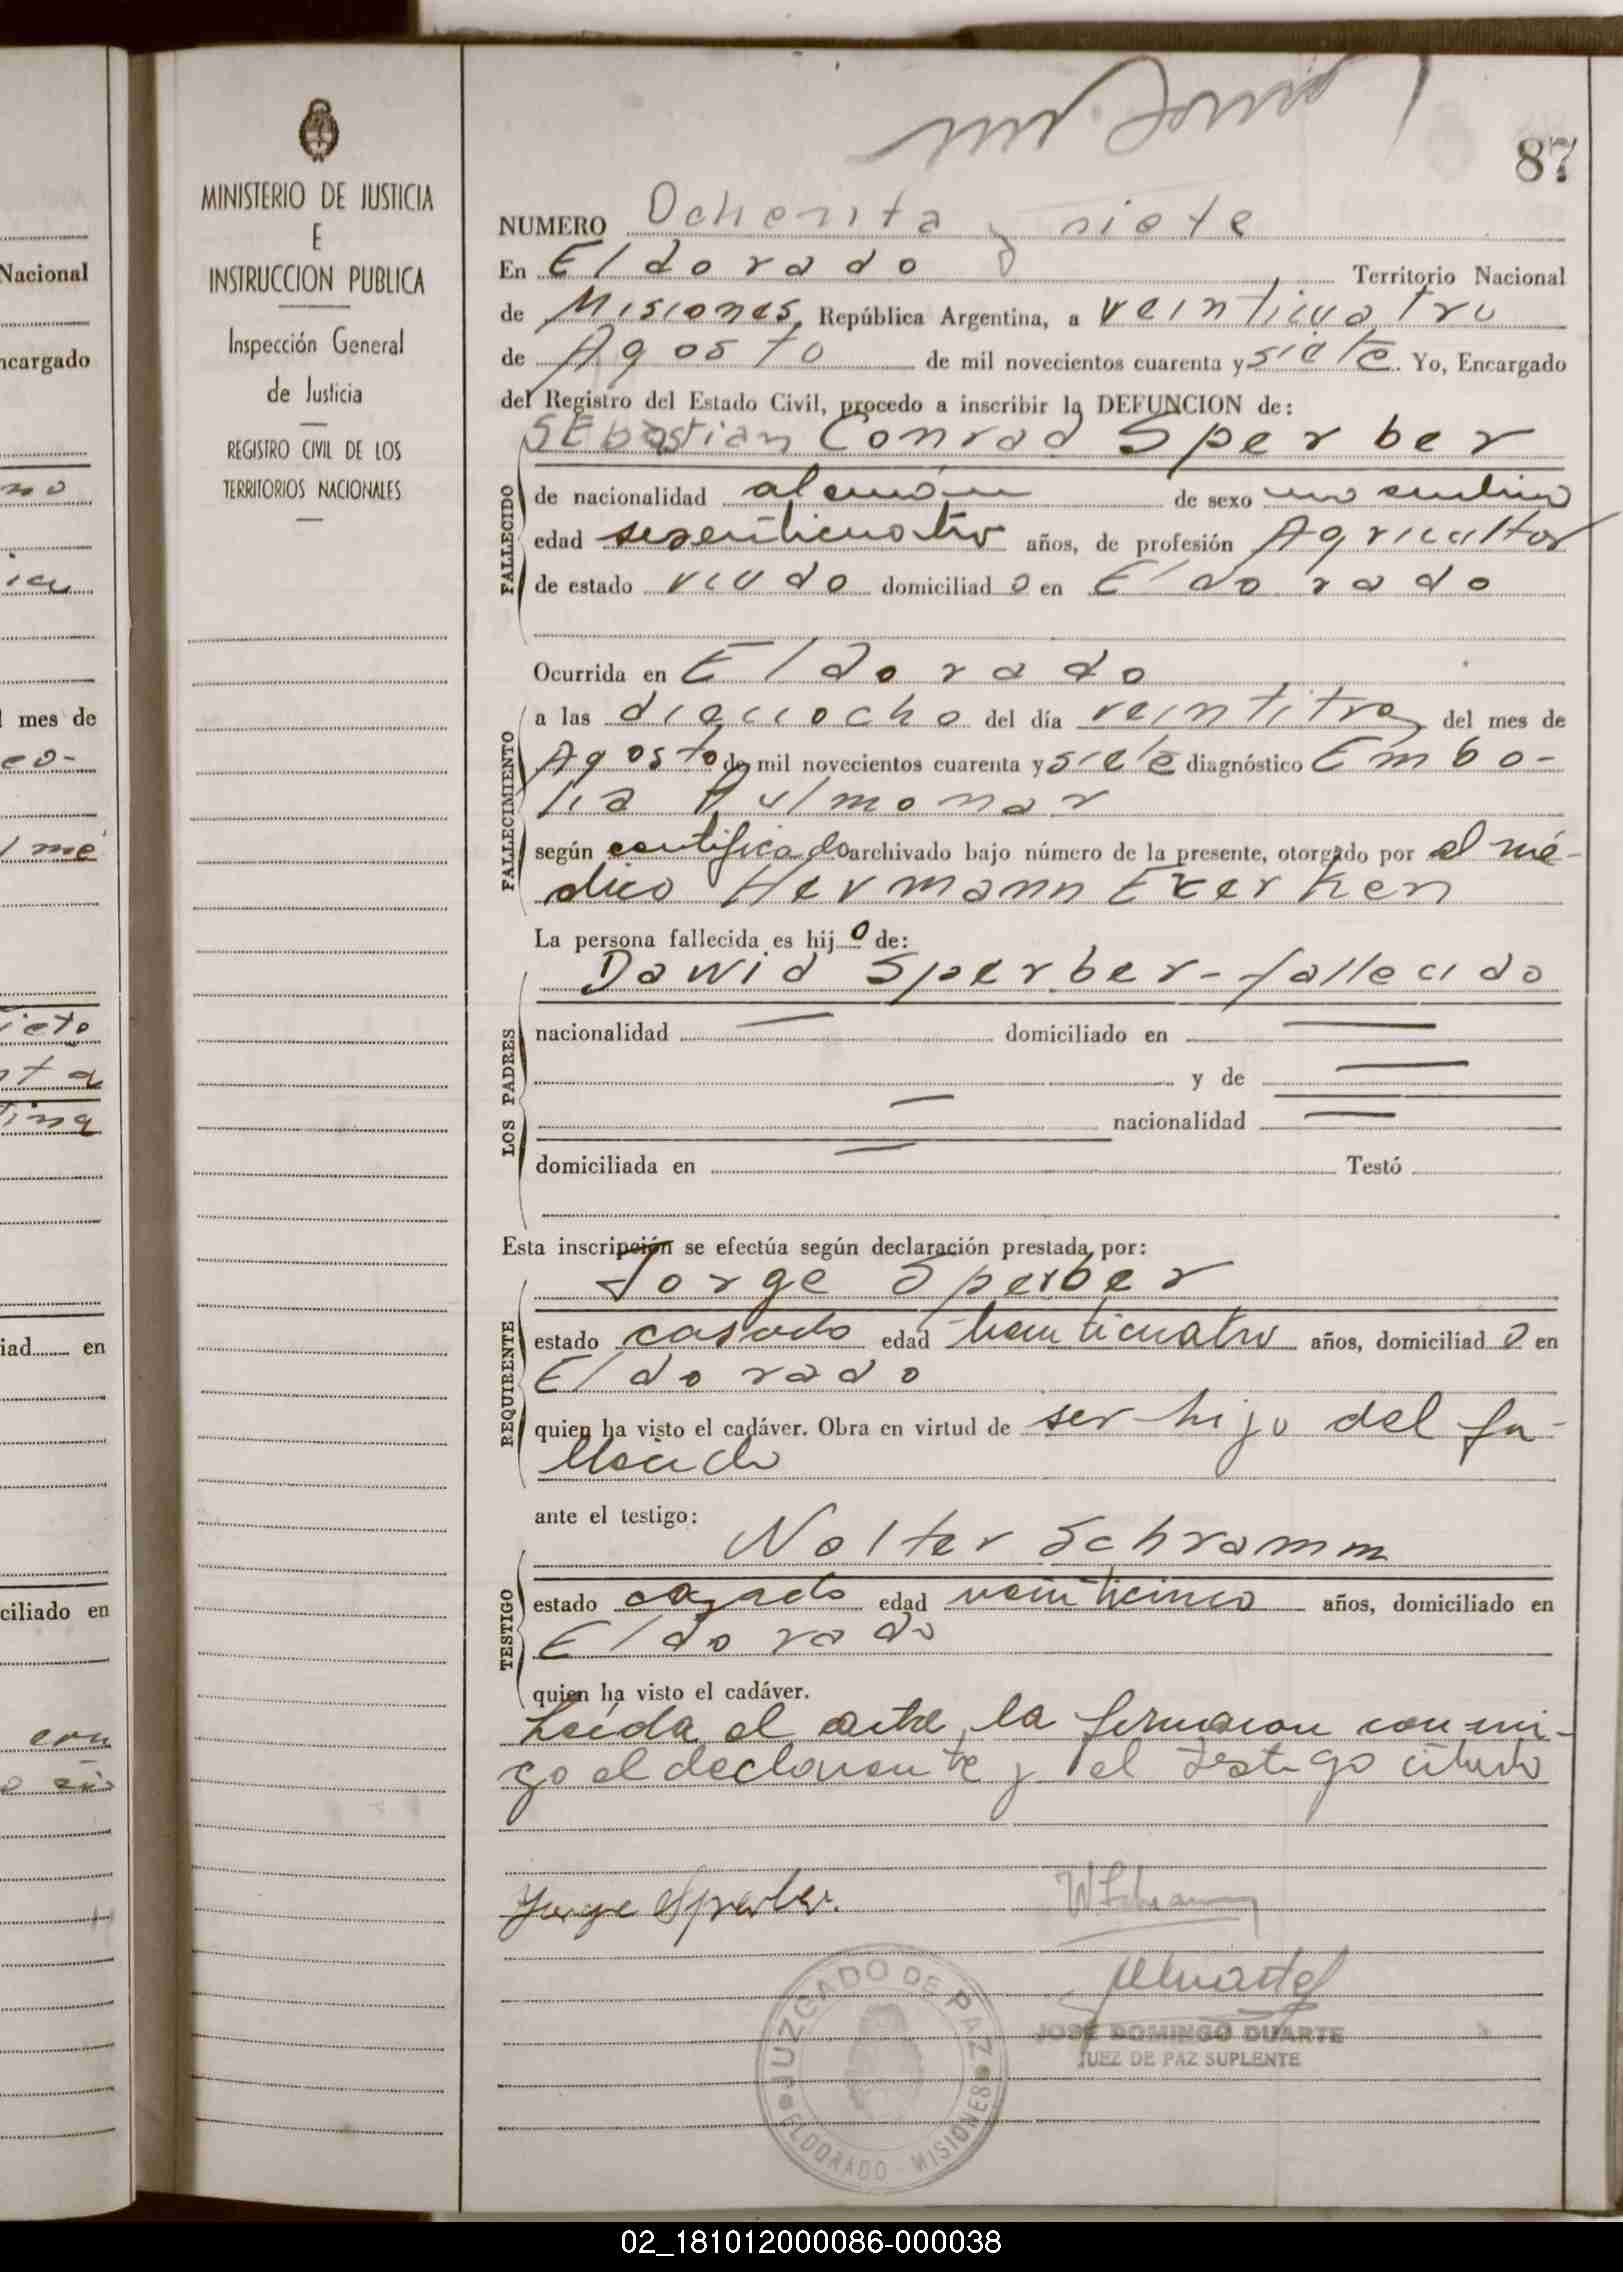 MINISTERIO DE JUSTICIA
E
INSTRUCCION PUBLICA
Inspección General
de Justicia
REGISTRO CIVIL DE LOS
TERRITORIOS NACIONALES
87
NUMERO Ochenta y siete
En Eldorado Territorio Nacional
de Misiones, República Argentina, a veinticuatro
de Agosto de mil novecientos cuarenta y siete. Yo, Encargado
del Registro del Estado Civil, procedo a inscribir la DEFUNCION de:
SEbastian Conrad Sperber
FALLECIDO
de nacionalidad alemán de sexo masculino
edad sesenticuatro años, de profesión Agricultor
de estado viudo domiciliado en Eldorado
Ocurrida en Eldorado
FALLECIMIENTO
a las dieciocho del día veintitres del mes de
Agosto de mil novecientos cuarenta y siete diagnóstico Embo-
lia Pulmonar
según certificado archivado bajo número de la presente, otorgado por el mé-
dico Hermann Exerken
La persona fallecida es hijo de:
LOS PADRES
Dawid Sperber - fallecido
nacionalidad — domiciliado en —
y de —
— nacionalidad —
domiciliada en — Testó
Esta inscripción se efectúa según declaración prestada por:
REQUIRENTE
Jorge Sperber
estado casado edad treinticuatro años, domiciliado en
Eldorado
quien ha visto el cadáver. Obra en virtud de ser hijo del fa-
llecido
ante el testigo:
TESTIGO
Wolter Schramm
estado casado edad veinticinco años, domiciliado en
Eldorado
quien ha visto el cadáver.
Leída el acta, la firmaron conmi-
go el declarante y el testigo citado
Jorge Sperber.
W Schramm
JUZGADO DE PAZ
ELDORADO - MISIONES
JOSE DOMINGO DUARTE
JUEZ DE PAZ SUPLENTE
Nacional
ncargado
mes de
iad en
ciliado en
02_181012000086-000038